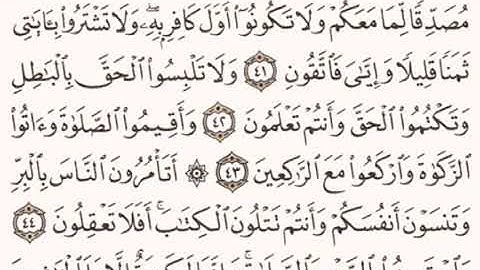 مُصَدِّقًا لِّمَا مَعَكُمْ وَلَا تَكُونُوٓا۟ أَوَّلَ كَافِرٍۭ بِهِۦۖ وَلَا تَشْتَرُوا۟ بِـَٔايَـٰتِى
ثَمَنًا قَلِيلًا وَإِيَّـٰىَ فَٱتَّقُونِ ٤١ وَلَا تَلْبِسُوا۟ ٱلْحَقَّ بِٱلْبَـٰطِلِ
وَتَكْتُمُوا۟ ٱلْحَقَّ وَأَنتُمْ تَعْلَمُونَ ٤٢ وَأَقِيمُوا۟ ٱلصَّلَوٰةَ وَءَاتُوا۟
ٱلزَّكَوٰةَ وَٱرْكَعُوا۟ مَعَ ٱلرَّٰكِعِينَ ٤٣ ۞ أَتَأْمُرُونَ ٱلنَّاسَ بِٱلْبِرِّ
وَتَنسَوْنَ أَنفُسَكُمْ وَأَنتُمْ تَتْلُونَ ٱلْكِتَـٰبَۚ أَفَلَا تَعْقِلُونَ ٤٤